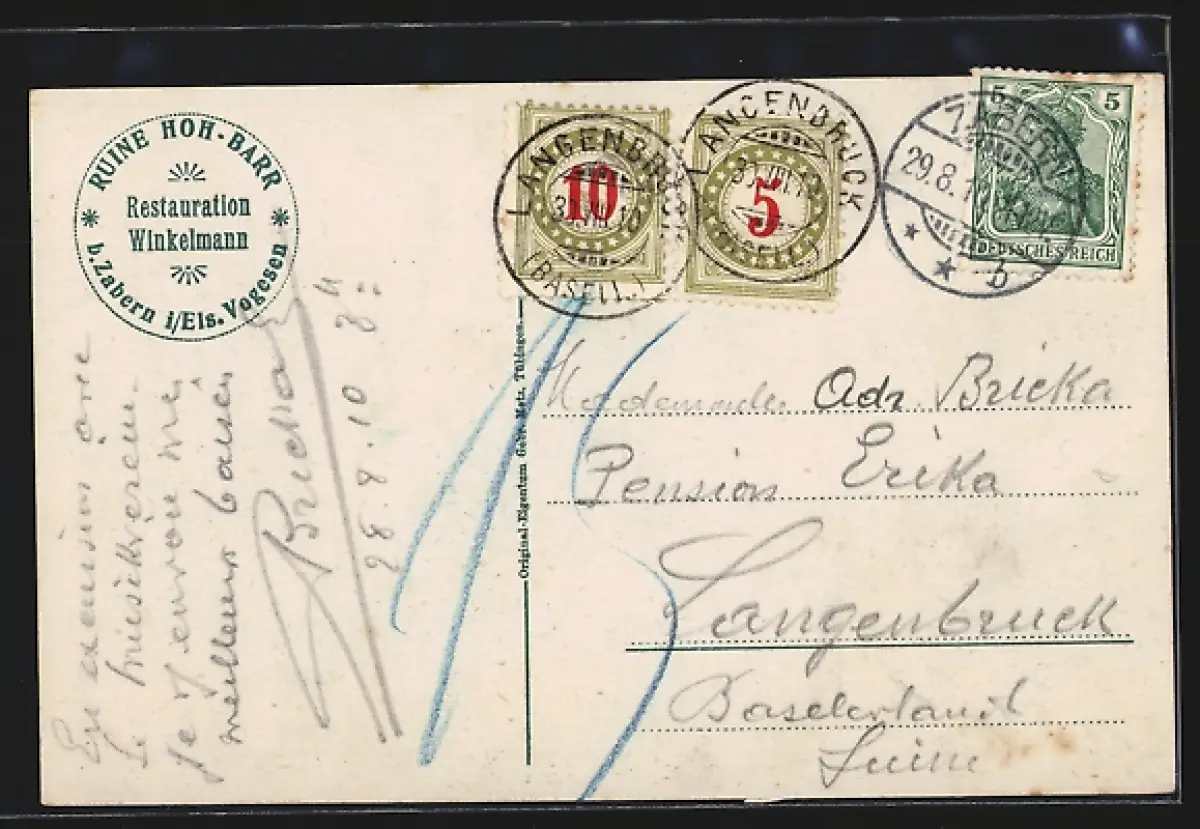 RUINE HOH-BARR
Restauration
Winkelmann
b. Zabern i/Els. Vogesen
LANGENBRUCK
10
(BASELL.)
LANGENBRUCK
5
(BASELL.)
ZABERN
29.8.1
b
5 5
DEUTSCHES REICH
En excursion avec
le Musikverein
Je t'envoie mes
meilleurs baisers
28.8.10
Original-Eigentum Gebr. Metz, Tübingen.
15
Mademoiselle Adr. Bricka
Pension Erika
Langenbruck
Baselerland
Suisse